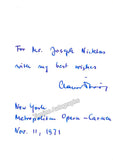 For Mr. Joseph
with my best wishes
New York
Metropolitan Opera - Carmen
Nov. 11, 1971